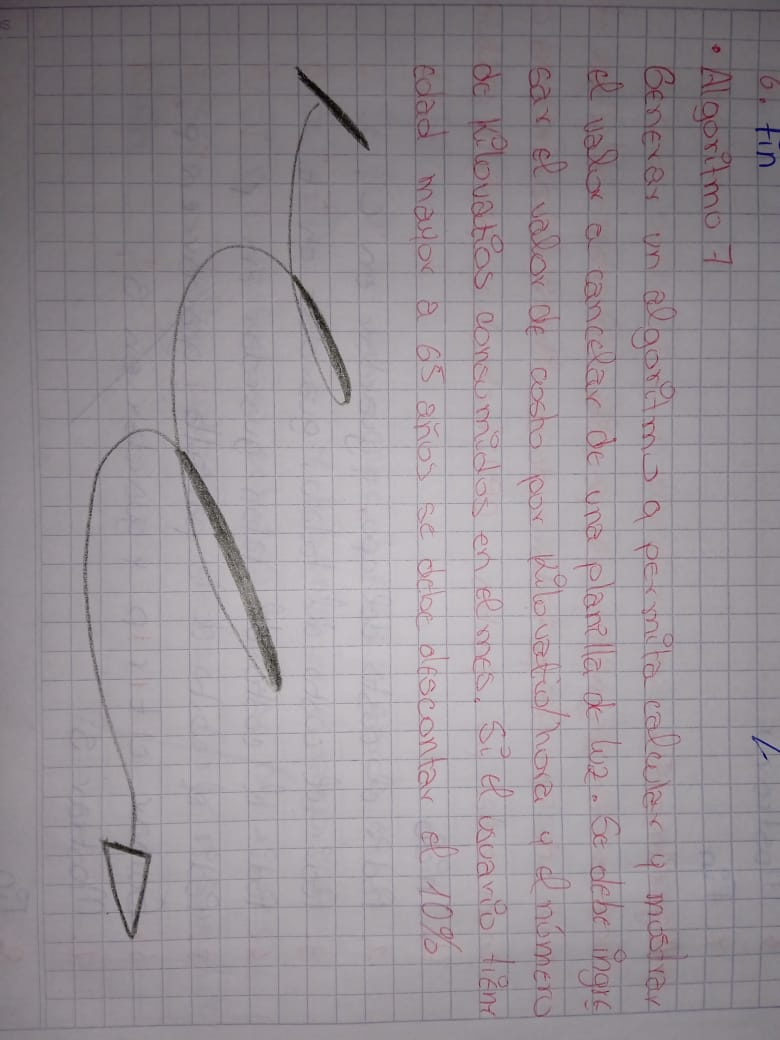 6. fin
• Algoritmo 7
Generar un algoritmo q permita calcular y mostrar
el valor a cancelar de una planilla de luz. Se debe ingre
sar el valor de costo por kilovatio/hora y el número
de kilovatios consumidos en el mes. Si el usuario tiene
edad mayor a 65 años se debe descontar el 10%